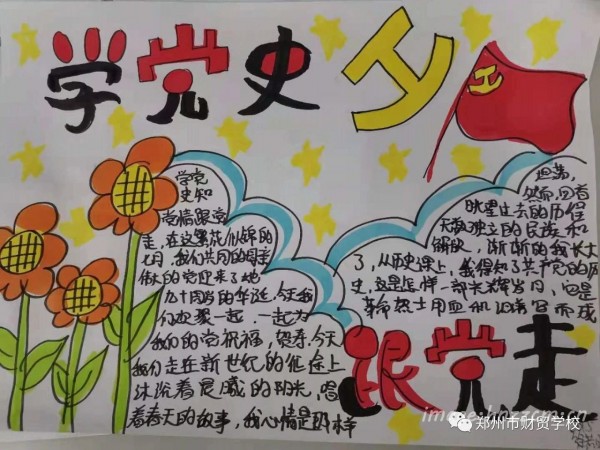 学党史
学党
史知
党情跟党
走,在这繁花似锦的
七月,我们共同的母亲
伟大的党迎来了她
九十周岁的华诞,今天我
们欢聚一起,一起为
我们的党祝福,贺寿,今天
我们走在新世纪的征途上
沐浴着晨曦的阳光,唱
着春天的故事,我心情是那样
坦荡,
然而,回首
眺望过去的历程
天有独立的民族和
解放,渐渐的我长大
了,从历史课上,我得知了共产党的历
史,这是怎样一部光辉岁月,它是
革命烈士用血和泪谱写而成
跟党走
郑州市财贸学校